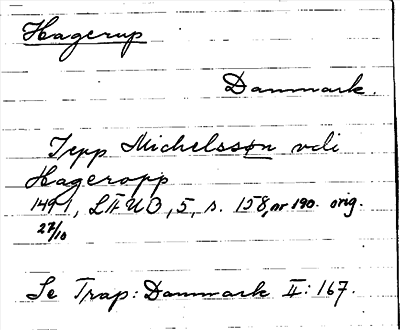 Hagerup
Danmark.
Jepp Michelsson vdi
Hageropp
1491, LÄUB, 5, s. 158, nr 190. orig.
27/10
Se Trap: Danmark II: 167.